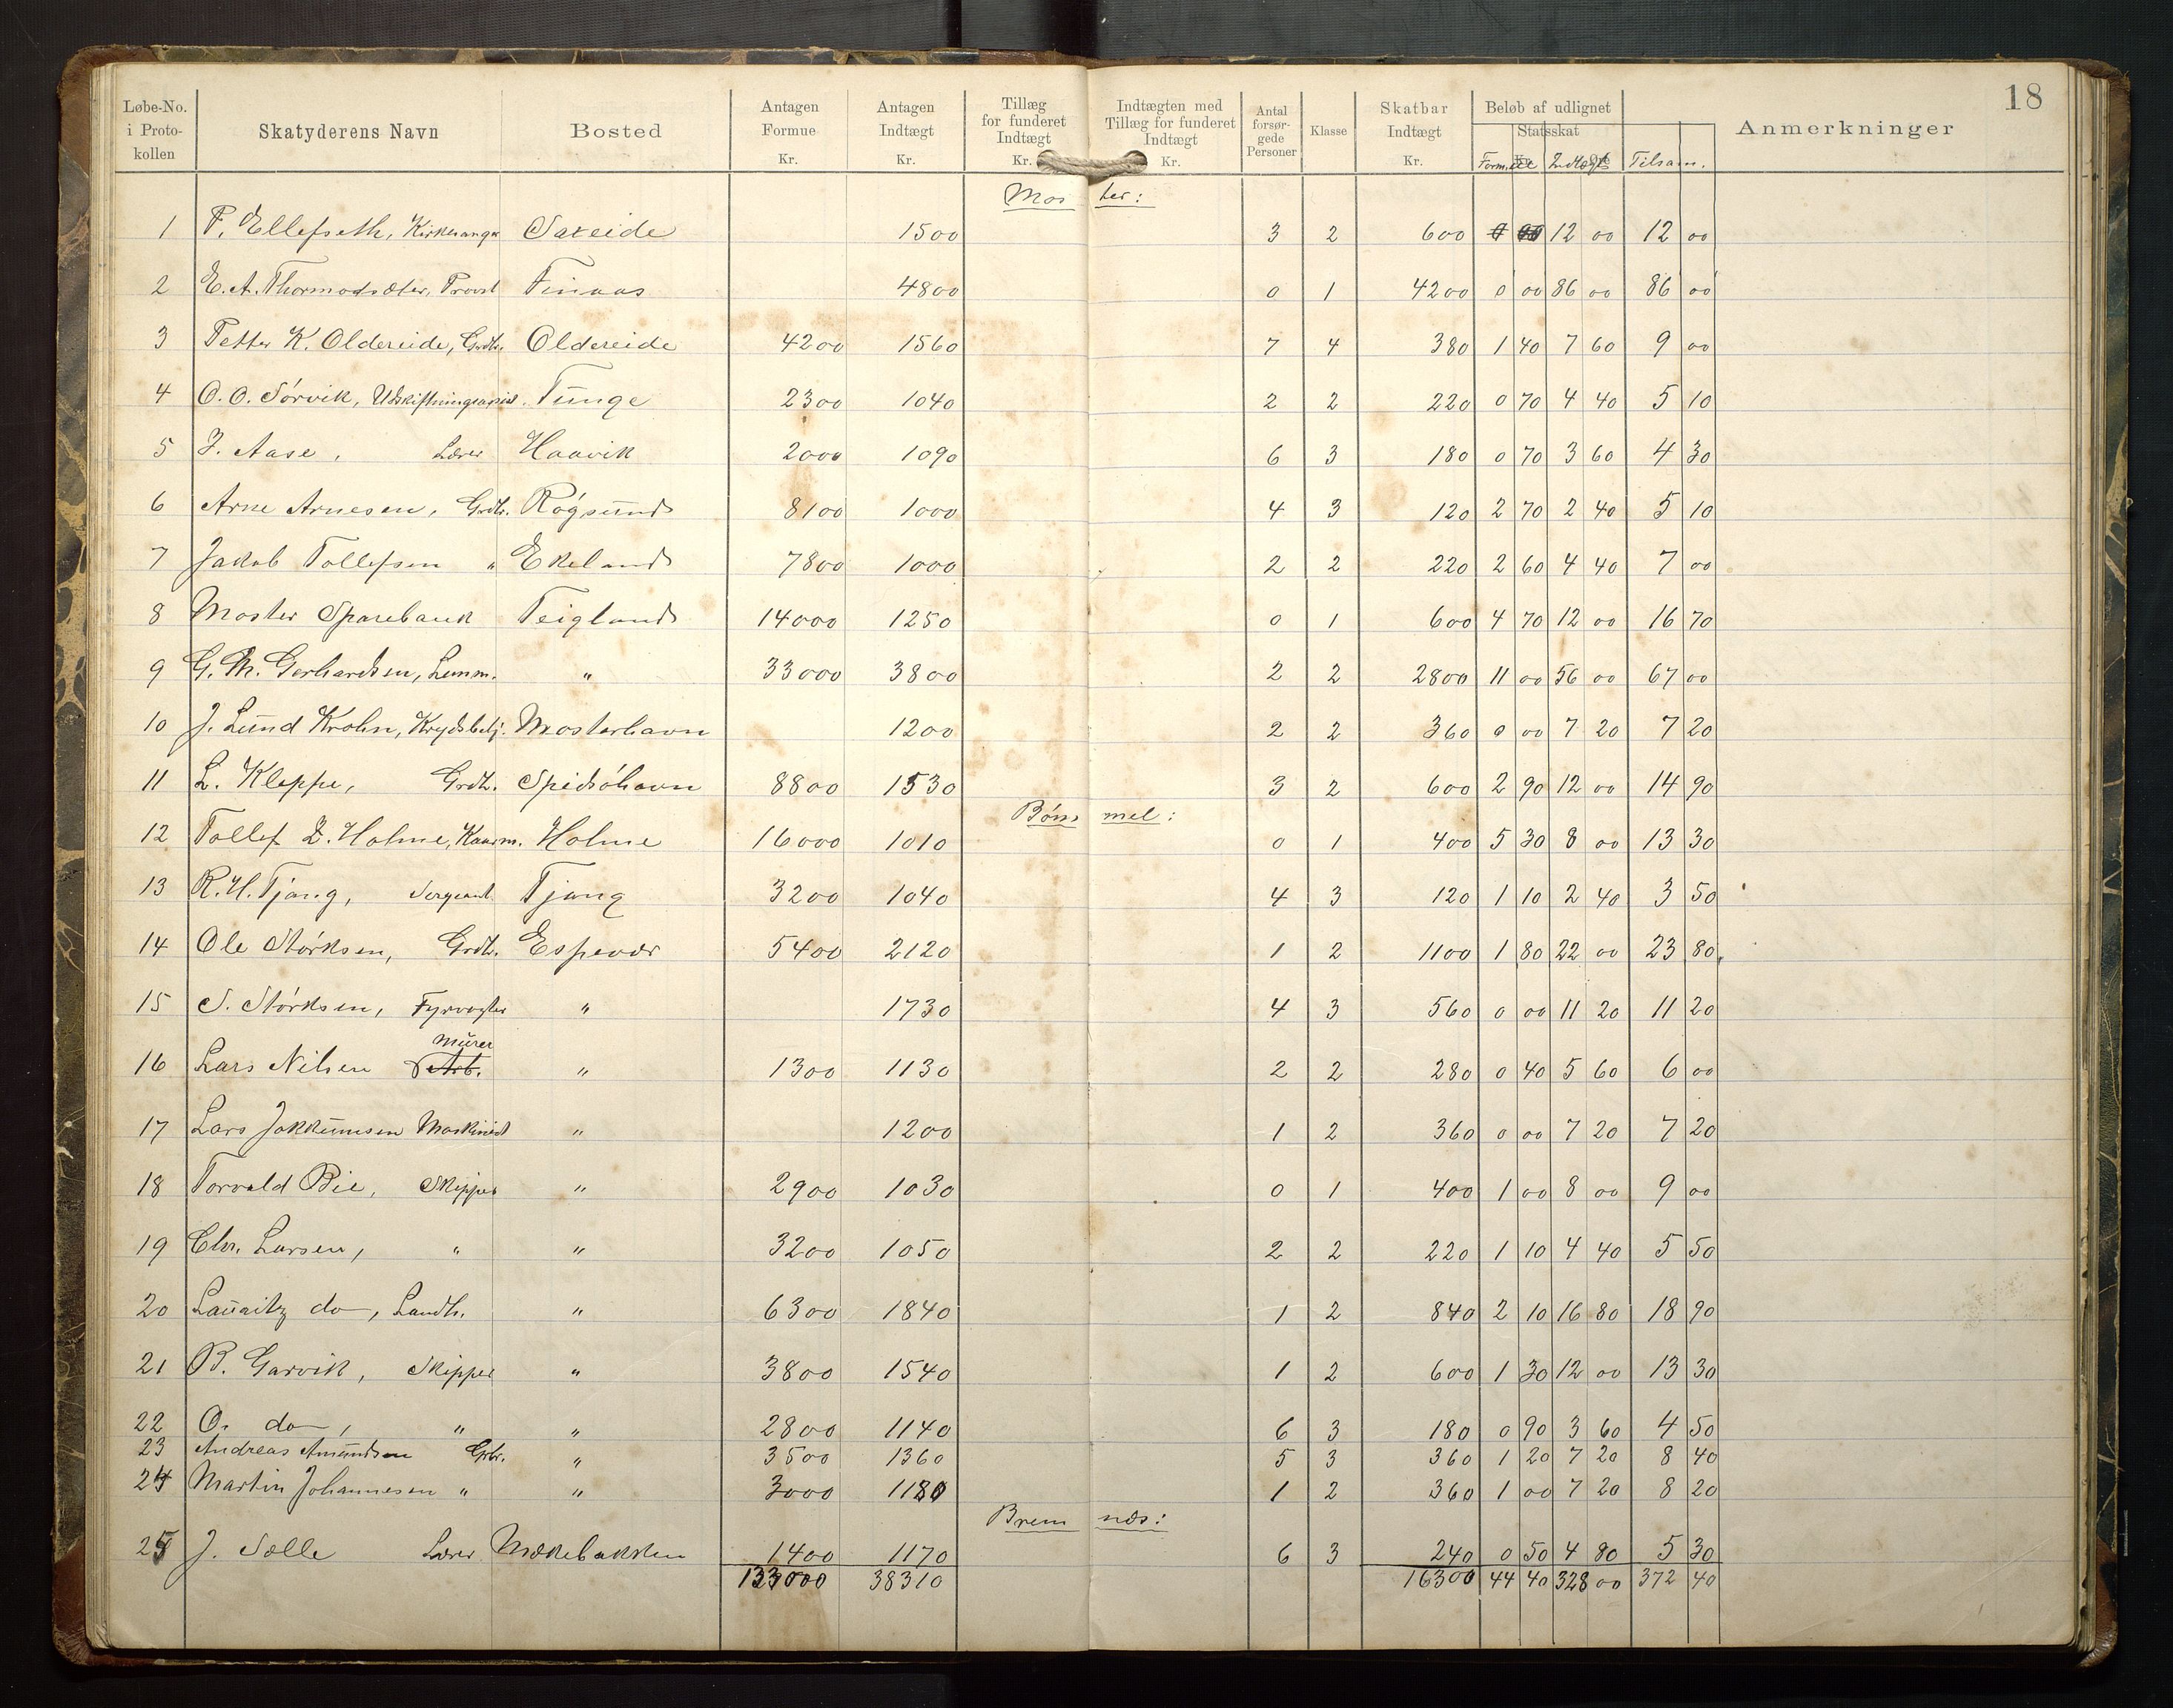 18
Løbe-No. i Proto-kollen | Skatyderens Navn | Bosted | Antagen Formue Kr. | Antagen Indtægt Kr. | Tillæg for funderet Indtægt Kr. | Indtægten med Tillæg for funderet Indtægt Kr. | Antal forsør-gede Personer | Klasse | Skatbar Indtægt Kr. | Beløb af udlignet Statsskat Formue Indtægt Tilsam. | Anmerkninger
Moster:
1 | F. Ellefseth, Kirkesanger | Sakseide | 1500 | 3 | 2 | 600 | 12 00 | 12 00
2 | E. A. Thormodsæter, Provst | Finaas | 4800 | 0 | 1 | 4200 | 0 00 | 86 00 | 86 00
3 | Petter K. Oldereide, Grdb. | Oldereide | 4200 | 1560 | 7 | 4 | 380 | 1 40 | 7 60 | 9 00
4 | O. O. Sørvik, Udskiftningsassist. | Tunge | 2300 | 1040 | 2 | 2 | 220 | 0 70 | 4 40 | 5 10
5 | J. Aase, Lærer | Haavik | 2000 | 1090 | 6 | 3 | 180 | 0 70 | 3 60 | 4 30
6 | Arne Arnesen, Grdb. | Røgsund | 8100 | 1000 | 4 | 3 | 120 | 2 70 | 2 40 | 5 10
7 | Jakob Tollefsen " | Ekeland | 7800 | 1000 | 2 | 2 | 220 | 2 60 | 4 40 | 7 00
8 | Moster Sparebank | Teigland | 14000 | 1250 | 0 | 1 | 600 | 4 70 | 12 00 | 16 70
9 | G. M. Gerhardsen, Lensm. | " | 33000 | 3800 | 2 | 2 | 2800 | 11 00 | 56 00 | 67 00
10 | J. Lund Krohn, Krydsbetj. | Mosterhavn | 1200 | 2 | 2 | 360 | 0 00 | 7 20 | 7 20
11 | L. Kleppe, Grdb. | Spidsøhavn | 8800 | 1530 | 3 | 2 | 600 | 2 90 | 12 00 | 14 90
Bømmel:
12 | Tollef L. Holme, Kaarm. | Holme | 16000 | 1010 | 0 | 1 | 400 | 5 30 | 8 00 | 13 30
13 | R. H. Tjong, Sergeant | Tjong | 3200 | 1040 | 4 | 3 | 120 | 1 10 | 2 40 | 3 50
14 | Ole Størksen, Grdb. | Espevær | 5400 | 2120 | 1 | 2 | 1100 | 1 80 | 22 00 | 23 80
15 | S. Størksen, Fyrvogter | " | 1730 | 4 | 3 | 560 | 0 00 | 11 20 | 11 20
16 | Lars Nilsen Arb. Murer | " | 1300 | 1130 | 2 | 2 | 280 | 0 40 | 5 60 | 6 00
17 | Lars Jokkumsen Maskinist | " | 1200 | 1 | 2 | 360 | 0 00 | 7 20 | 7 20
18 | Torvald Bie, Skipper | " | 2900 | 1030 | 0 | 1 | 400 | 1 00 | 8 00 | 9 00
19 | Chr. Larsen, " | " | 3200 | 1050 | 2 | 2 | 220 | 1 10 | 4 40 | 5 50
20 | Lauritz do, Landh. | " | 6300 | 1840 | 1 | 2 | 840 | 2 10 | 16 80 | 18 90
21 | B. Garvik, Skipper | " | 3800 | 1540 | 1 | 2 | 600 | 1 30 | 12 00 | 13 30
22 | O. do, " | " | 2800 | 1140 | 6 | 3 | 180 | 0 90 | 3 60 | 4 50
23 | Andreas Amundsen Grbr. | " | 3500 | 1360 | 5 | 3 | 360 | 1 20 | 7 20 | 8 40
24 | Martin Johannesen " | " | 3000 | 1180 | 1 | 2 | 360 | 1 00 | 7 20 | 8 20
Bremnæs:
25 | J. Sølle Lærer | Mækebakken | 1400 | 1170 | 6 | 3 | 240 | 0 50 | 4 80 | 5 30
133000 | 38310 | 16300 | 44 40 | 328 00 | 372 40